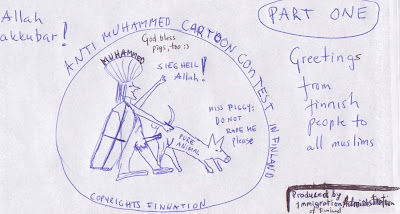 Allah
akkubar!
ANTI MUHAMMED CARTOON CONTEST IN FINLAND
God bless
pigs, too :s
MUHAMMED
SIEGHEIL
Allah!
MISS PIGGY:
DO NOT
RAPE ME
please
PURE
ANIMAL
COPYRIGHTS FINNATION
PART ONE
Greetings
from
finnish
people to
all muslims
Produced by
Immigration Administration
of Finland